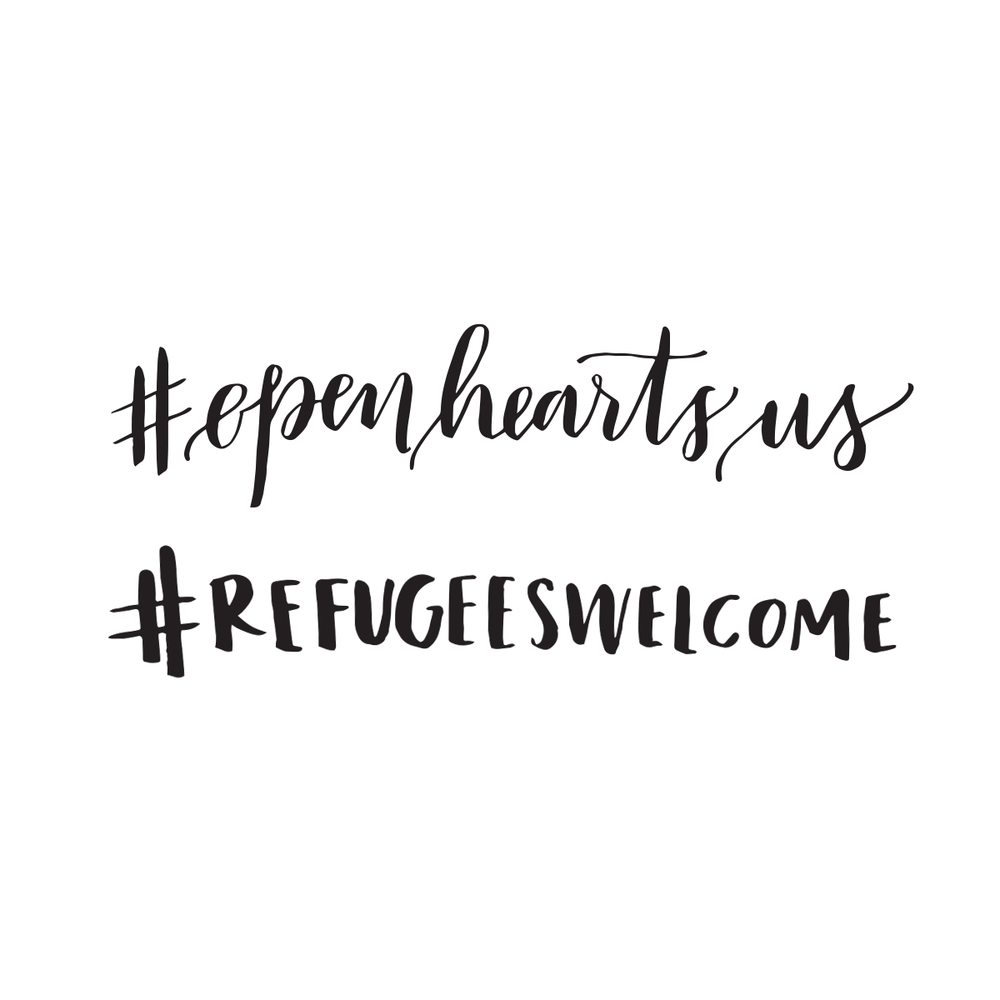 #openheartsus
#REFUGEESWELCOME